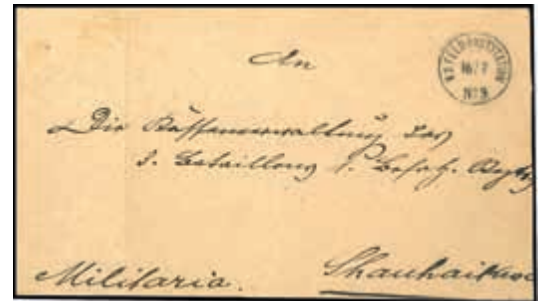 K.D. FELD-POSTSTATION
16/7
No 9
An
Die Kassenverwaltung des
3. Bataillons 1. Besatz. Regts
Militaria.
Shanhaikwan